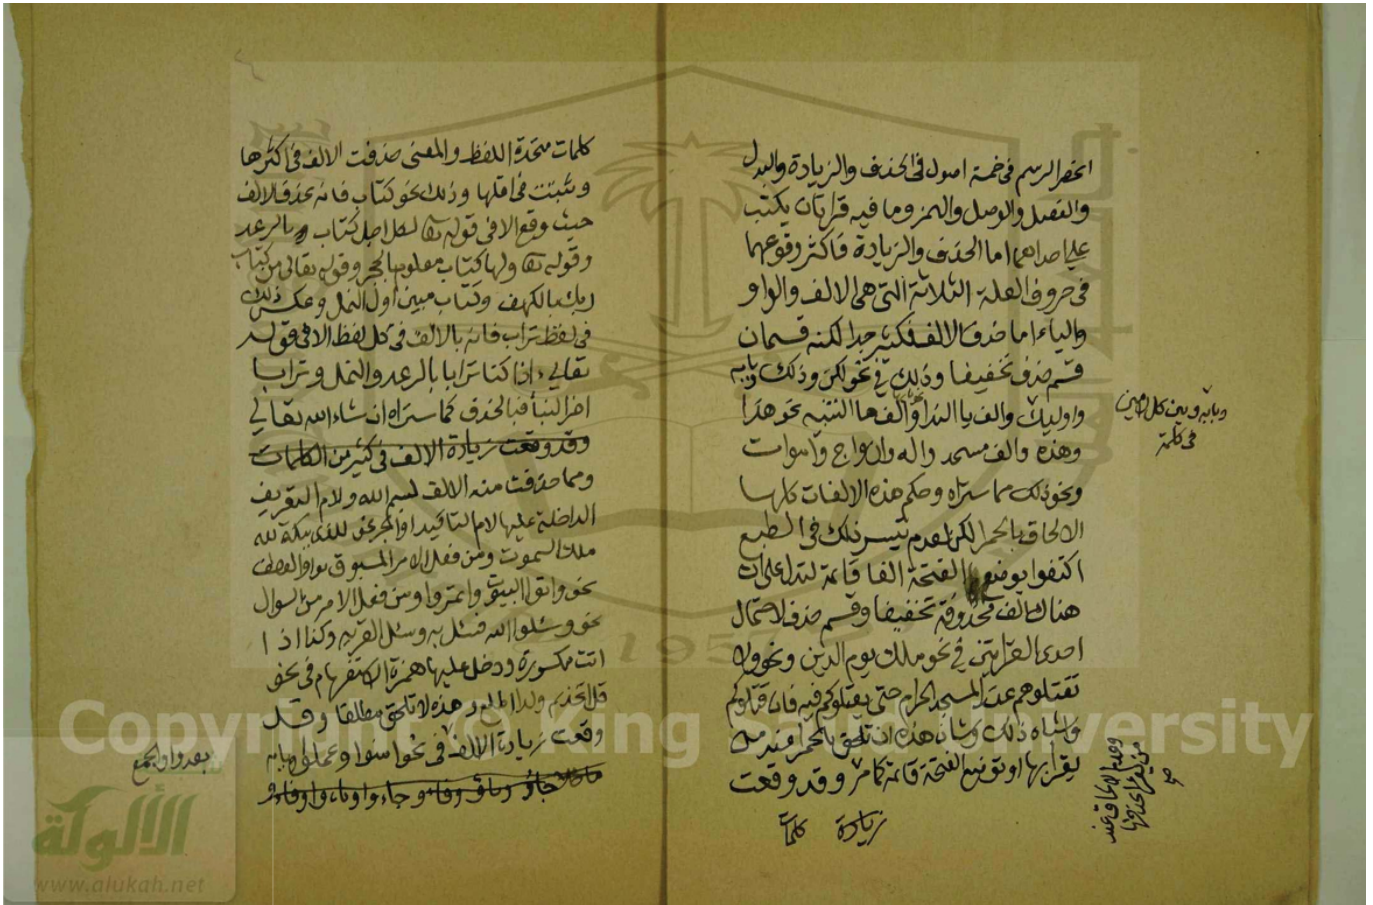 انحصر الرسم في خمسة اصول في الحذف والزيادة والبدل
والفصل والوصل والهمز وما فيه قراتان يكتب
على احداهما اما الحذف والزيادة فاكثر وقوعهما
في حروف العلة الثلاثة التي هي الالف والواو
والياء اما حذف الالف فكثير جدا لكنه قسمان
قسم حذف تخفيفا وذلك في نحو لكن وذلك وبابه
واوليك والف يا الندا والف ها التنبيه نحو هذا
وهذه والف مسجد واله وازواج واموات
ونحو ذلك مما ستراه وحكم هذه الالفات كلها
الالحاق بالحمرا لكن لعدم تيسر ذلك في الطبع
اكتفوا بوضع الفتحة الفا قائمة لتدل على ان
هناك الف محذوفة تخفيفا وقسم حذف لاحتمال
احدى القرايتين في نحو ملك يوم الدين ونحو ولا
تقتلوهم عند المسجد الحرام حتى يقتلوكم فيه فان قتلوكم
واشباه ذلك وشان هذه ان تلحق بالحمرا عند من
يقرا بها او توضع الفتحة قائمة كما مر وقد وقعت
زيادة كلمات
وبابه وبين كل لامين
في كلمة
وعدم الالحاق عند
من يقرا بحذفها
صح
كلمات متحدة اللفظ والمعنى حذفت الالف في اكثرها
وثبتت في اقلها وذلك نحو كتاب فانه بحذف الالف
حيث وقع الا في قوله تعا لكل اجل كتاب بالرعد
وقوله تعا ولها كتاب معلوم بالحجر وقوله تعالى من كتاب
ربك بالكهف وكتاب مبين اول النمل وعكس ذلك
في لفظ تراب فانه بالالف في كل لفظ الا في قوله
تعالى اذا كنا ترابا بالرعد والنمل وترابا
اخر النبأ فبالحذف كما ستراه ان شاء الله تعالى
وقد وقعت زيادة الالف في كثير من الكلمات
ومما حذفت منه الالف بسم الله ولام التعريف
الداخلة عليها لام التاكيد او الجر نحو للذي ببكة لله
ملك السموت ومن فعل الامر المسبوق بواو العطف
نحو واتوا البيوت واتمروا ومن فعل الامر من السوال
نحو وسئلوا الله فسئل به وسئل القرية وكذا اذا
اتت مكسورة ودخل عليها همزة الاستفهام في نحو
قل اتخذتم ولدا وهذه لا تلحق مطلقا وقد
وقعت زيادة الالف في نحو امنوا وعملوا وبابه
جاؤ وباؤ وفاؤ
بعد واو الجمع
Copyright © King Saud University
1957
الألوكة
www.alukah.net